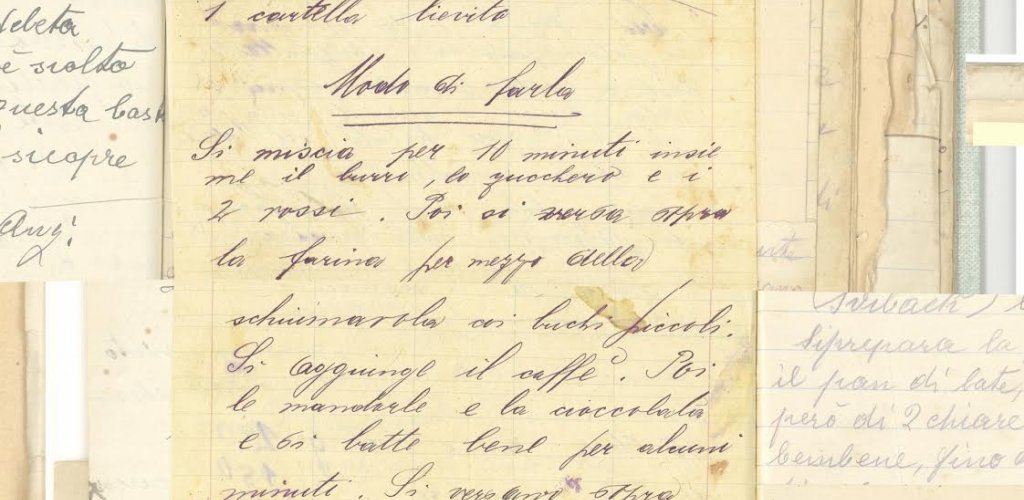 1 cartella lievito
Modo di farla
Si miscia per 10 minuti insie
me il burro, lo zucchero e i
2 rossi. Poi si versa sopra
la farina per mezzo della
schiumarola coi buchi piccoli.
Si aggiunge il caffè. Poi
le mandorle e la cioccolata
e si batte bene per alcuni
minuti. Si versano sopra
è siolto
questa bast
sicopre
Siprepara la
il pan di late,
però di 2 chiare
bembene, fino a